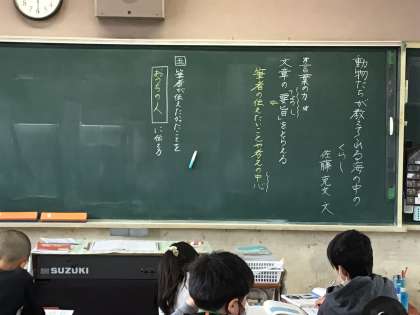 動物たちが教えてくれる海の中の
くらし
佐藤克文 文
言葉の力は
文章の「要旨」をとらえる
ようし
筆者の伝えたいことや考えの中心
筆者が伝えたかったことを
おうちの人 に伝える
SUZUKI